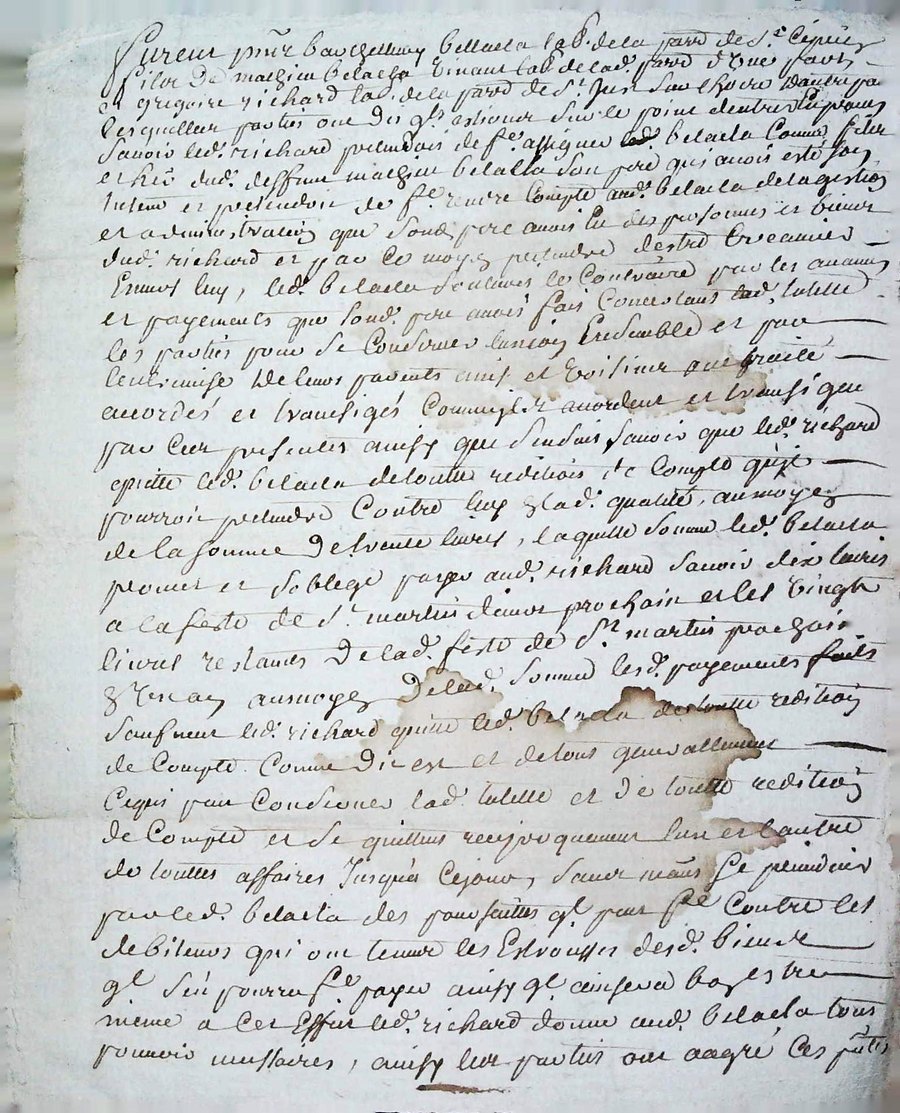 furent pntz barthellemy belaela lab. de la parro de St Ciprice
filz de mathieu belaela vivant lab. de lad. parro d'Une part,
et gregoire richard lab. de la parro de St Just Sauthocre d'autre pa
lesquelles parties ont dit qls estionet sur le point d'entrer en procès
savoir led. richard pretendois de fe. assigner led. belaela comme filz
et her. dud. deffunt mathieu belaela son pere qui avois esté son
tuteur et pretendoit de fe. rendre compte aud. belaela de la gestion
et administration que sond. pere avoit eu des personnes et biens
dud. richard et par ce moyen pretendre d'estre creancier
Envers luy, led. belaela soutenoit le contraire par les avances
et payements que sond. pere avoit fait concernant lad. tutelle
les parties pour se conserver l'union Ensemble et par
l'entremise de leurs parents amis et voisins ont traité
accordés et transigés comme ils accordent et transigent
par ces presentes ainsy que s'ensuit savoir que led. richard
quitte led. belaela de toutte redition de compte qu'il
pourroit pretendre contre luy en lad. qualité, aumoyen
de la somme de trente livres, laquelle somme led. belaela
promet et s'oblege payer aud. richard savoir dix livres
a la feste de St. martin d'iver prochain et les vingt
livres restantes de lad. feste de St martin prochain
en un an aumoyen de lad. somme lesd. payements faits
led. richard quitte led. belaela de toutte redition
de compte comme dit est et de tout generallement
ce qui peut concerner lad. tutelle et de toutte redition
de compte et se quittent reciproquement l'un et l'autre
de touttes affaires jusqu'a ce jour, sauf mans se
par led. belaela des poursuittes ql. peut fe. contre les
debiteurs qui ont tenus les Estrousses desd. biens
ql. s'en pourra fe. payer ainsy ql. avisera bon estre
même a cet Effet led. richard donne aud. belaela tous
pouvoir nessaires, ainsy les parties ont aagré ces pntes